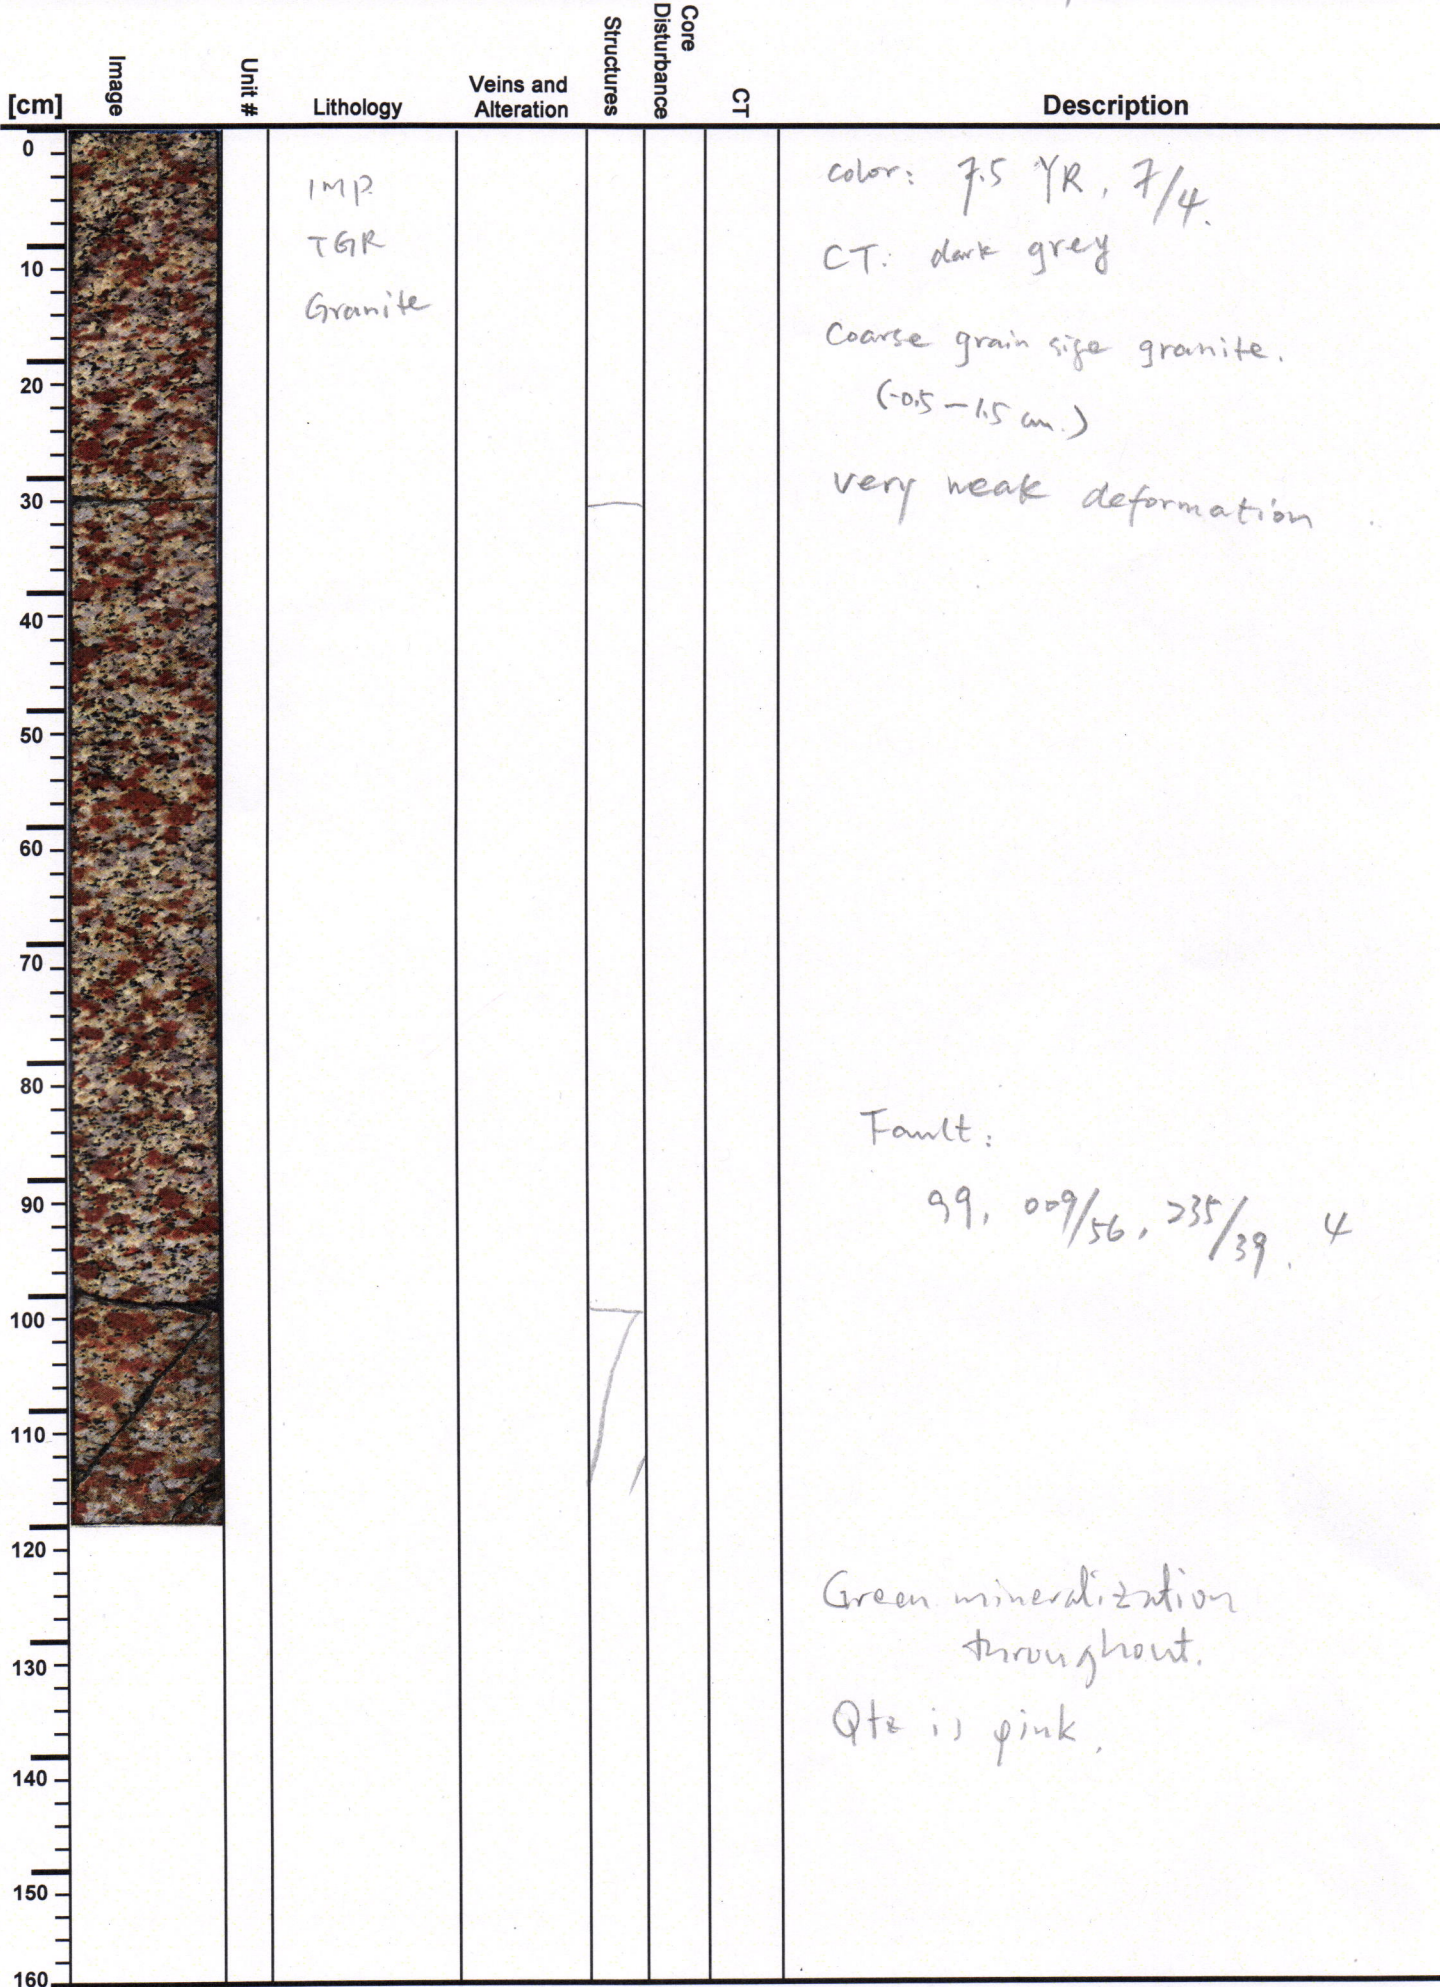 [cm] Image Unit # Lithology Veins and Alteration Structures Core Disturbance CT Description
0
10
20
30
40
50
60
70
80
90
100
110
120
130
140
150
160
IMP
TGR
Granite
color: 7.5 YR, 7/4.
CT: dark grey
Coarse grain size granite.
(-0.5 - 1.5 cm.)
very weak deformation
Fault:
99, 009/56, 235/39, 4
Green mineralization
throughout.
Qtz is pink.